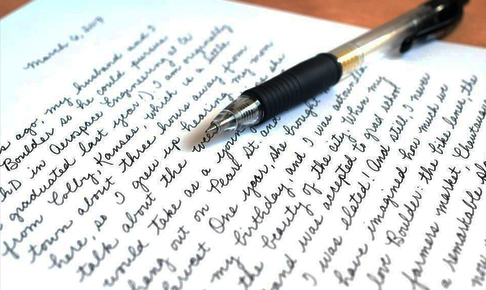 March 6,
ago, my husband and I
Boulder so he could pursue
PhD in Aerospace Engineering at CU
graduated last year). I am originally
from Colby, Kansas, which is a little
town about three hours away from
here, so I grew up hearing my mom
talk about the west
would take us a
hang out on Pearl St. and
One year, she brought
my birthday and I was
the beauty of the city. When my
and was accepted to grad school
I was elated! And still, I never
have imagined how much we
love Boulder: the bike lanes, the
farmers market
a remarkable
now